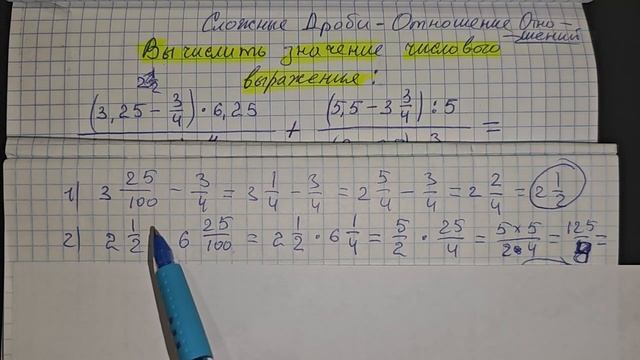 Сложные Дроби - Отношение Отно-
-шений
Вычислить значение числового
выражения:
2 1/2
(3,25 - 3/4) · 6,25 + (5,5 - 3 3/4) : 5 =
1) 3 25/100 - 3/4 = 3 1/4 - 3/4 = 2 5/4 - 3/4 = 2 2/4 = 2 1/2
2) 2 1/2 · 6 25/100 = 2 1/2 · 6 1/4 = 5/2 · 25/4 = 5×5/2·4 = 125/8 =